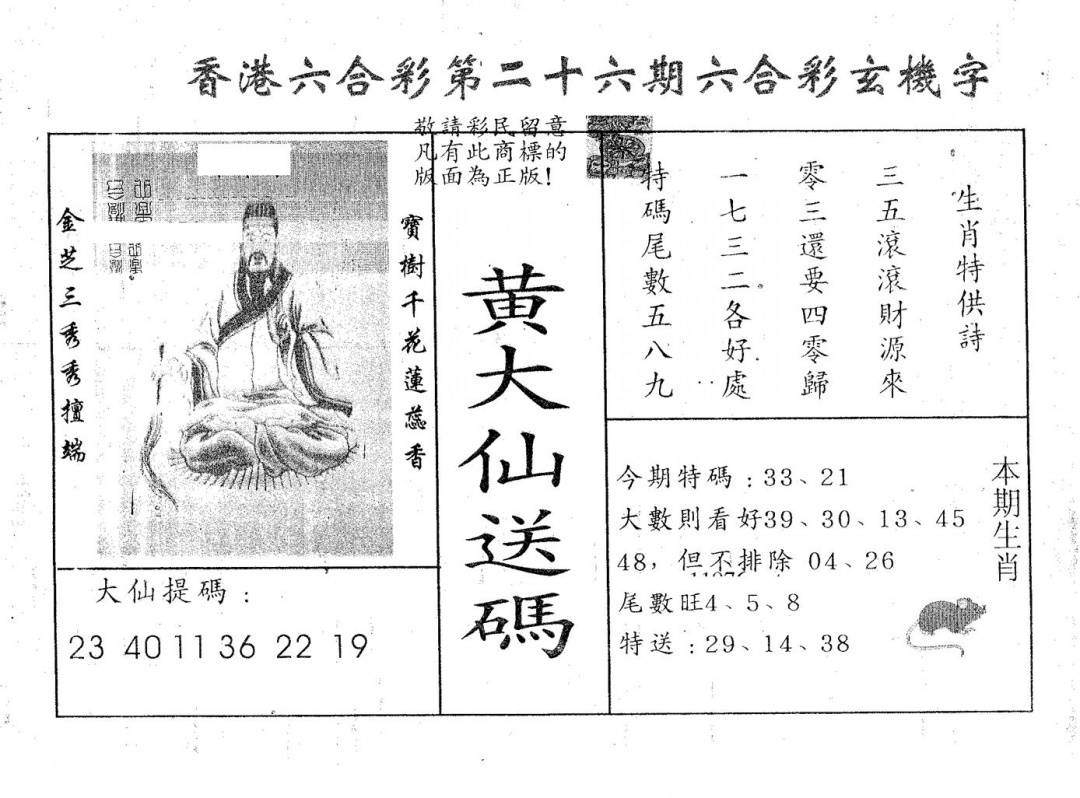 香港六合彩第二十六期六合彩玄機字
敬請彩民留意
凡有此商標的
版面為正版!
金芝三秀秀擅端
寶樹千花蓮蕊香
黃大仙送碼
大仙提碼:
23 40 11 36 22 19
生肖特供詩
三五滾滾財源來
零三還要四零歸
一七三二各好處
特碼尾數五八九
今期特碼:33、21
大數則看好39、30、13、45
48,但不排除 04、26
尾數旺4、5、8
特送:29、14、38
本期生肖